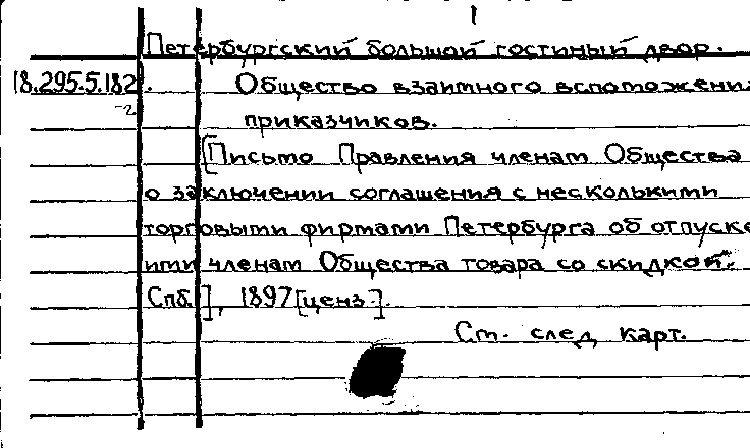 Петербургский большой гостиный двор.
18.295.5.182
-2
Общество взаимного вспоможения
приказчиков.
[Письмо Правления членам Общества
о заключении соглашения с несколькими
торговыми фирмами Петербурга об отпуске
ими членам Общества товара со скидкой.
Спб.], 1897 [ценз.].
См. след. карт.